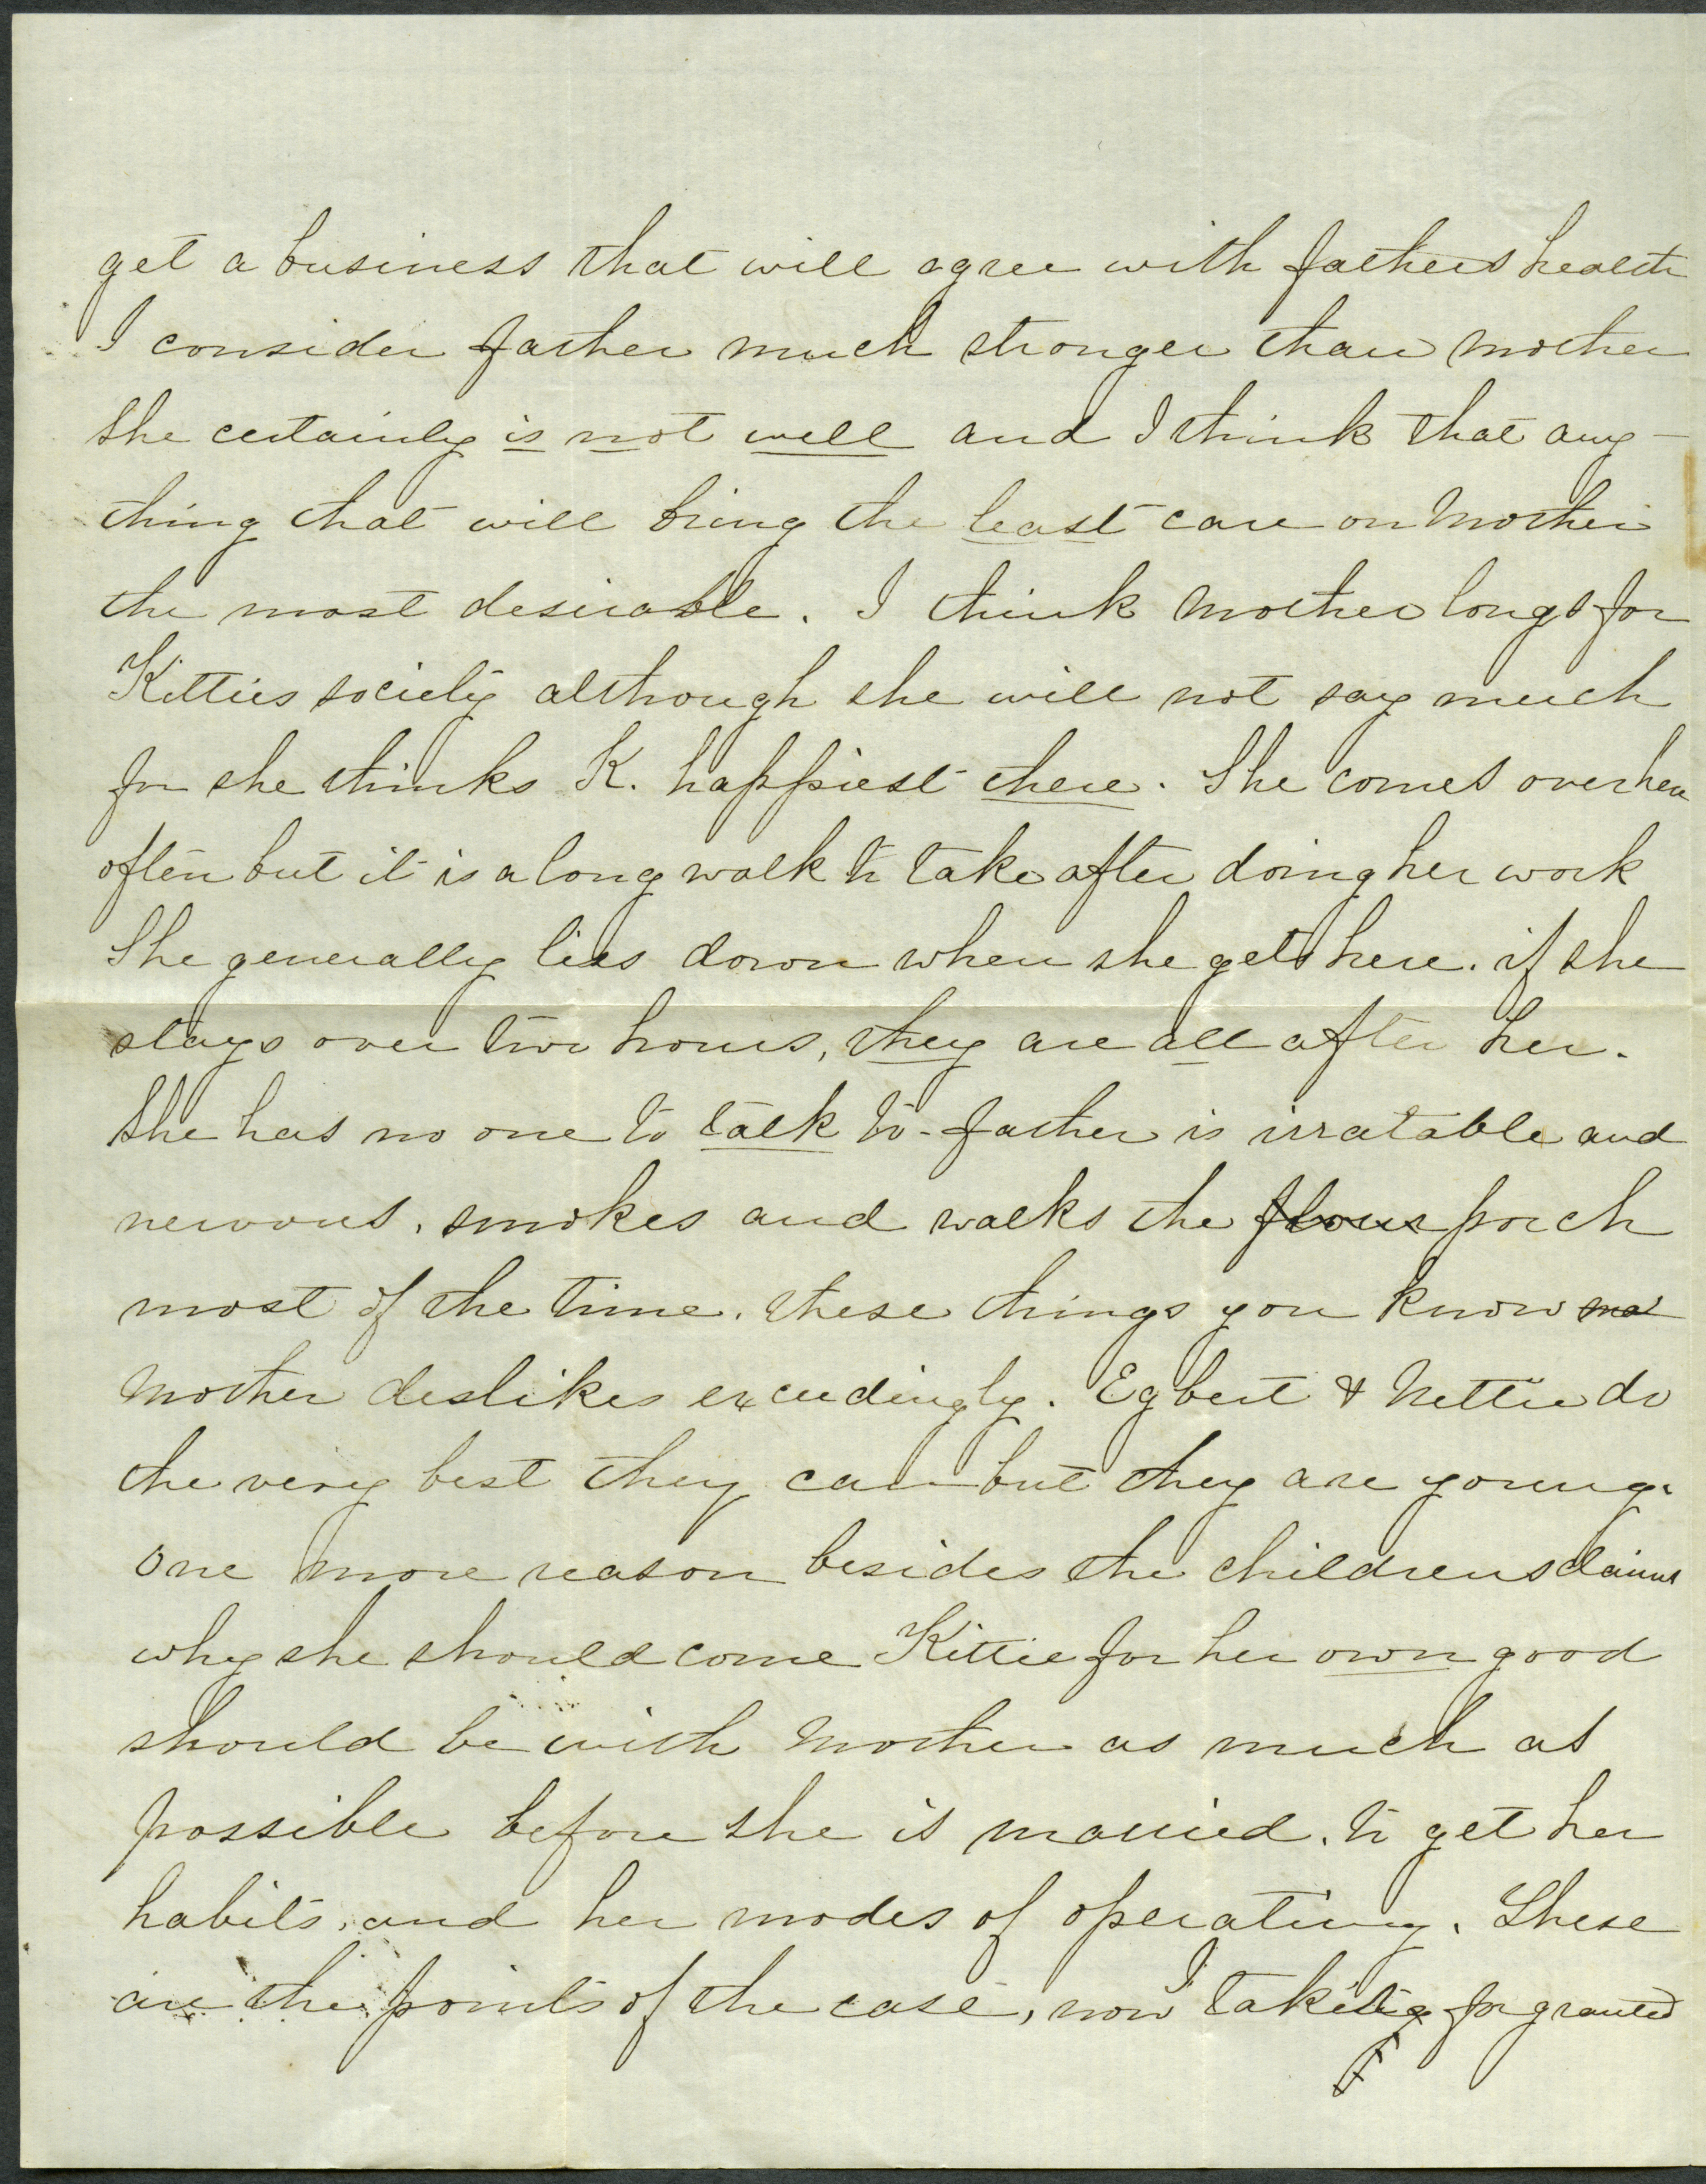 get a business that will agree with fathers health
I consider father much stronger than mother
She certainly is not well and I think that any-
thing that will bring the least care on Mother
the most desirable. I think Mother longs for
Kitties society although she will not say much
for she thinks K. happiest there. She comes over here
often but it is a long walk to take after doing her work
She generally lies down when she gets here. if she
stays over two hours, they are all after her.
She has no one to talk to - father is irratable and
nervous, smokes and walks the flour porch
most of the time. these things you know mo
Mother deslikes exceedingly. Egbert & Nettie do
the very best they can but they are young.
One more reason besides the childrens claims
why she should come Kittie for her own good
should be with Mother as much as
possible before she is married. to get her
habits, and her modes of operating. These
are the points of the case, now I take it for granted